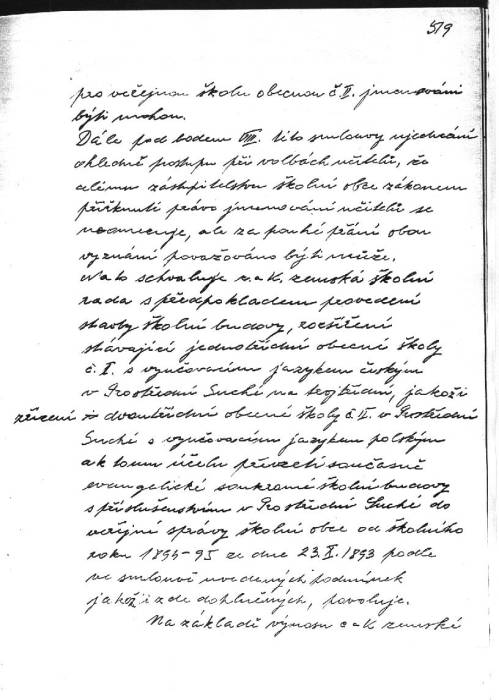 519
pro veřejnou školu obecnou č II. jmenováni
býti mohou.
Dále pod bodem VIII. této smlouvy ujednání
ohledně postupu při volbách učitelů, že
celému zástupitelstvu školní obce zákonem
přiřknuté právo jmenování učitelů se
neomezuje, ale za pouhé přání obou
vyznání považováno býti může.
Na to schvaluje c. a K. zemská školní
rada s předpokladem provedení
stavby školní budovy, rozšíření
stávající jednotřídní obecné školy
č. I. s vyučovacím jazykem českým
v Prostřední Suché na trojtřídní, jakož i
zřízení dvoutřídní obecné školy č. II. v Prostřední
Suché s vyučovacím jazykem polským
a k tomu účelu převzetí současně
evangelické soukromé školní budovy
s příslušenstvím v Prostřední Suché do
veřejné správy školní obce od školního
roku 1894-95 ze dne 23.X.1893 podle
ve smlouvě uvedených podmínek
jakož i zde doložených, povoluje.
Na základě výnosu c a K zemské